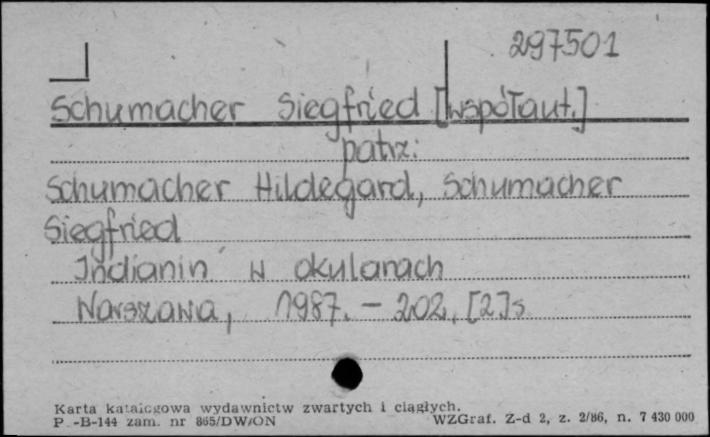 297501
Schumacher Siegfried [współaut.]
patrz:
Schumacher Hildegard, Schumacher
Siegfried
Indianin w okularach
Warszawa, 1987. – 202, [2] s
Karta katalogowa wydawnictw zwartych i ciągłych.
P.-B-144 zam. nr 865/DW/ON WZGraf. Z-d 2, z. 2/86, n. 7 430 000